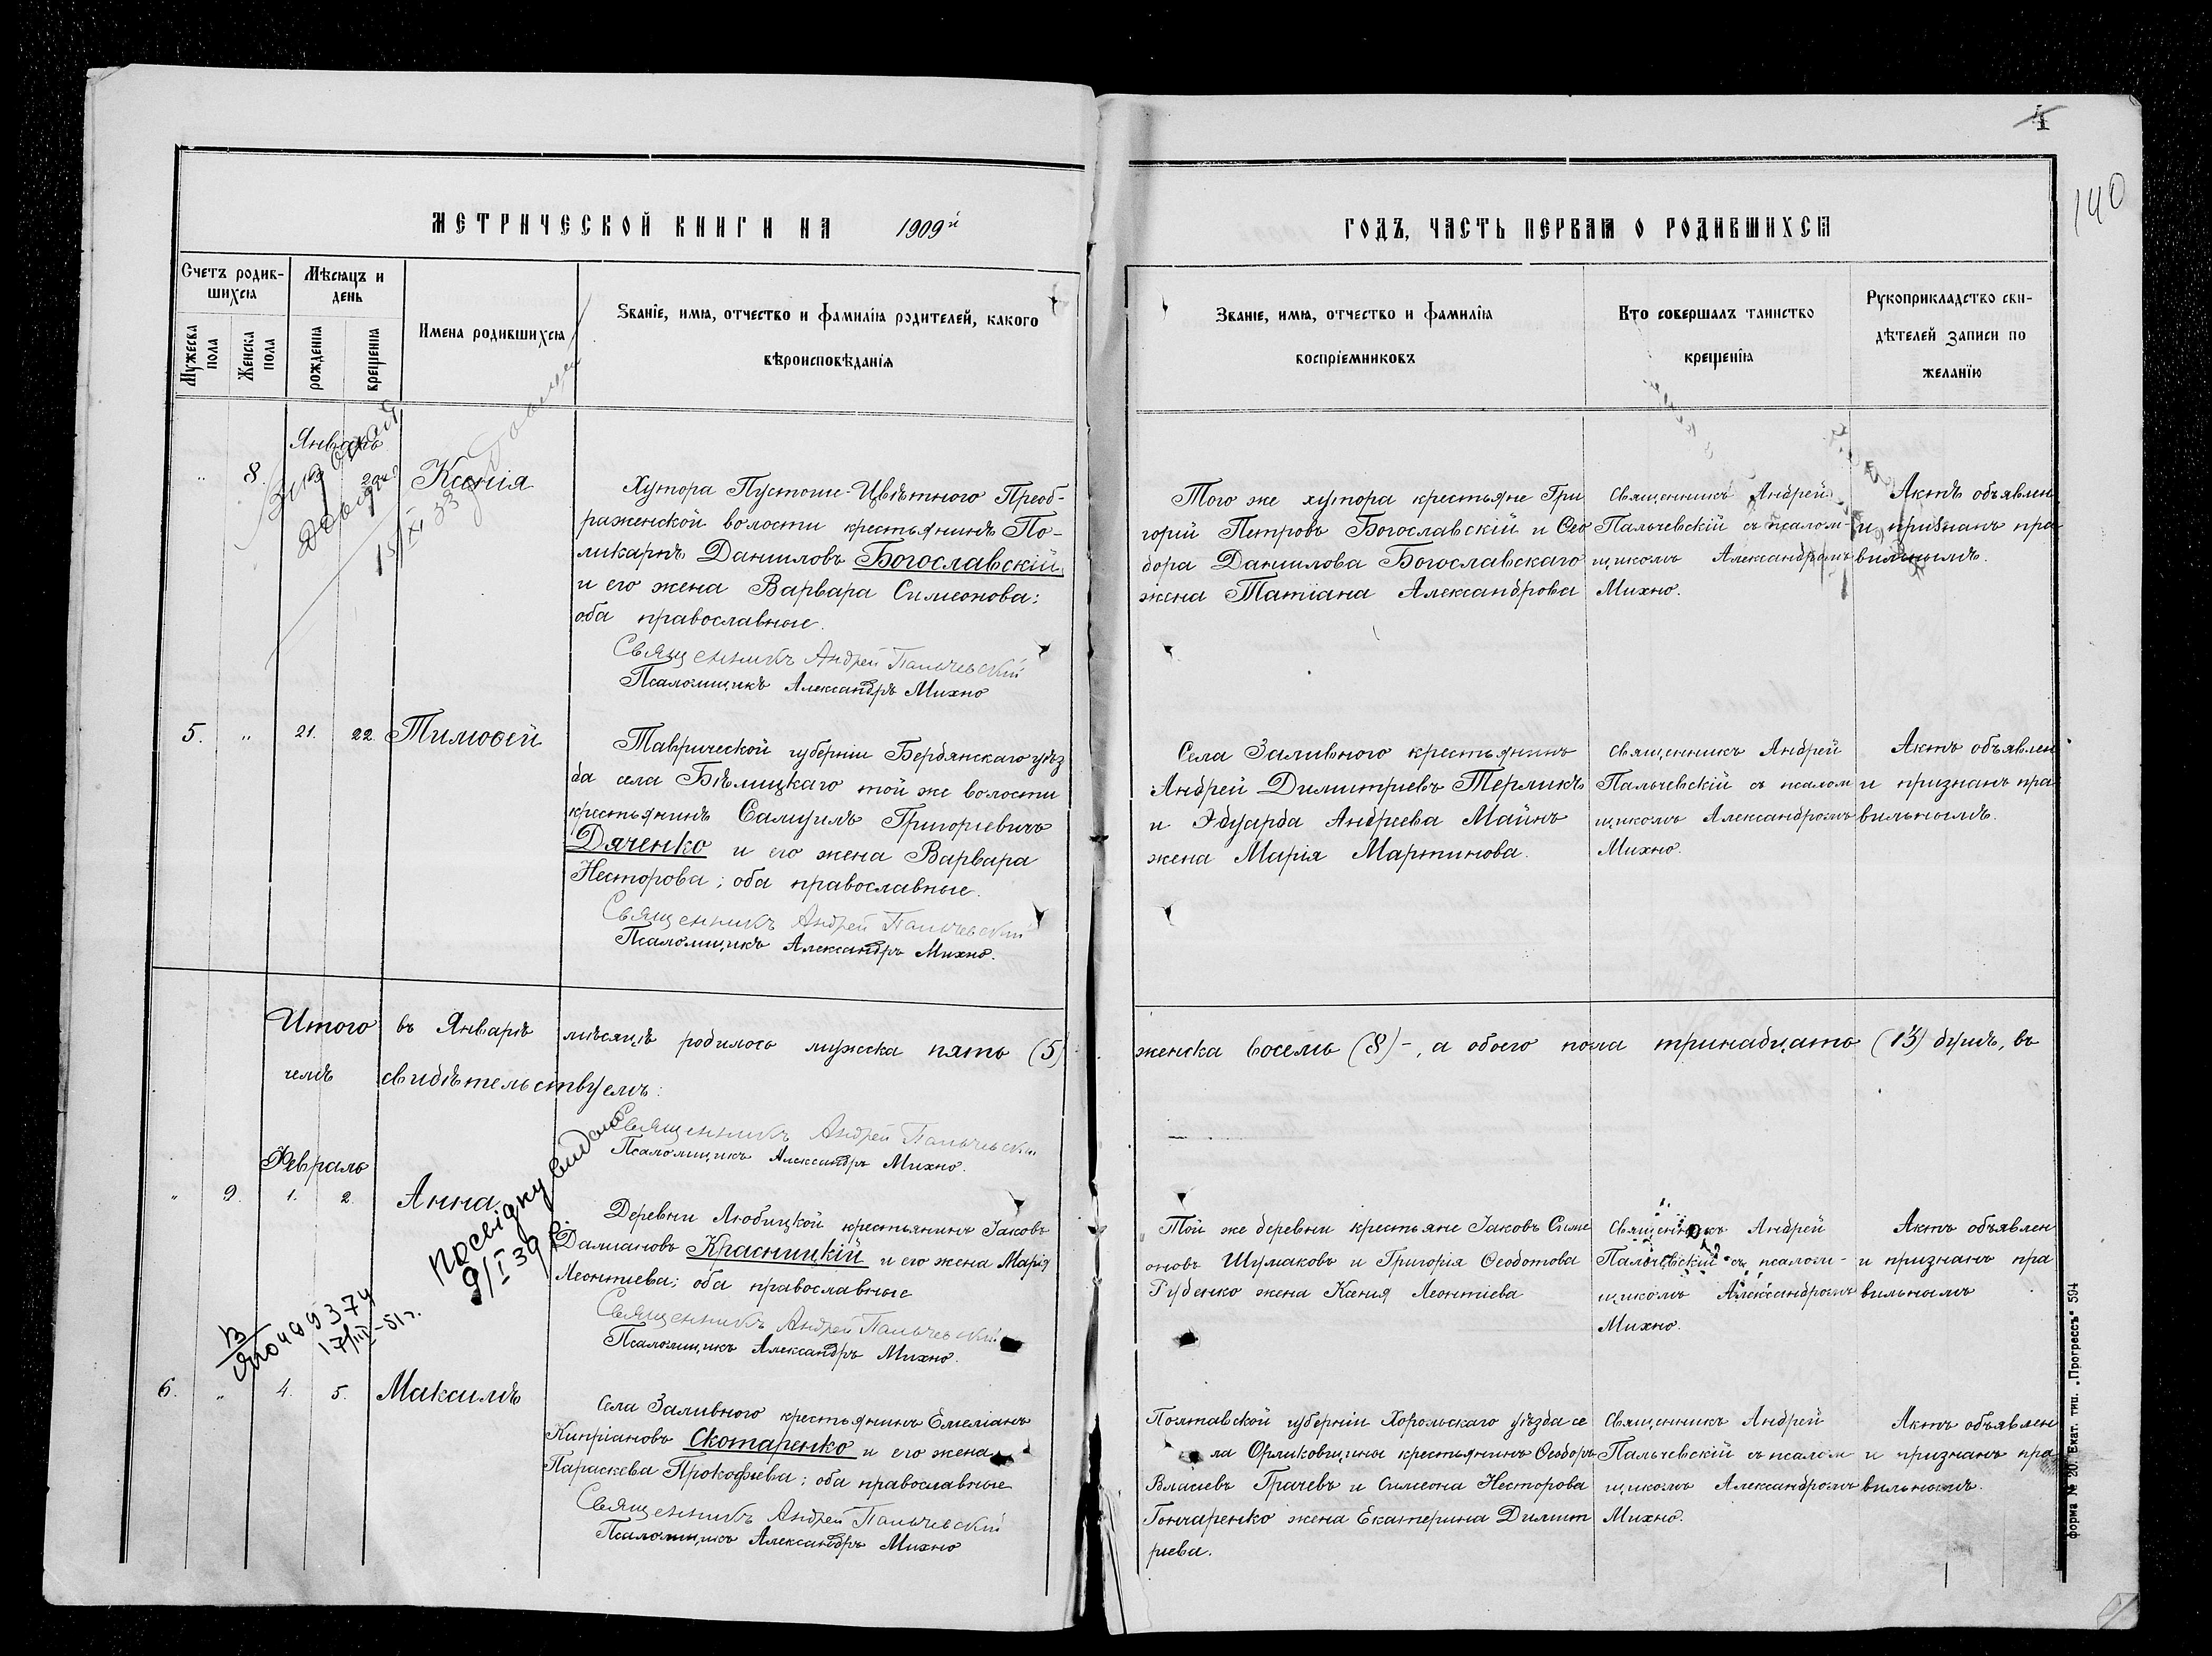 1
140
МЕТРИЧЕСКОЙ КНИГИ НА 1909й
ГОДЪ, ЧАСТЬ ПЕРВАЯ О РОДИВШИХСЯ
Счетъ родив-
шихся
Мужеска пола
Женска пола
Мѣсяцъ и
день
рожденія
крещенія
Имена родившихся
Званіе, имя, отчество и фамилія родителей, какого
вѣроисповѣданія
Званіе, имя, отчество и фамилія
воспріемниковъ
Кто совершалъ таинство
крещенія
Рукоприкладство сви-
дѣтелей записи по
желанію
Январь
„ 8. Ксенія
Хутора Пустоше-Цвѣтного Преоб-
раженской волости крестьянинъ По-
ликарпъ Даниловъ Богославскій
и его жена Варвара Симеонова:
оба православные.
Священникъ Андрей Пальчевский
Псаломщикъ Александръ Михно
Того же хутора крестьяне Гри
горий Петровъ Богославскій и Ѳео
дора Данилова Богославскаго
жена Татіана Александрова
Священникъ Андрей
Пальчевскій съ псалом-
щикомъ Александромъ
Михно.
Актъ объявлен
и признанъ пра
вильнымъ.
5. „ 21. 22. Тимоѳей
Таврической губерніи Бердянскаго уѣз
да села Бѣлицкаго той же волости
крестьянинъ Самуилъ Григорьевичъ
Дяченко и его жена Варвара
Несторова; оба православные.
Священникъ Андрей Пальчевский
Псаломщикъ Александръ Михно.
Села Заливного крестьянинъ
Андрей Димитриевъ Терликъ
и Эдуарда Андреева Майнъ
жена Марія Мартинова.
Священникъ Андрей
Пальчевскій съ псалом
щикомъ Александромъ
Михно.
Актъ объявлен
и признанъ пра
вильнымъ.
Итого въ Январѣ мѣсяцѣ родилось мужска пять (5)
женска восемь (8)-, а обоего пола тринадцать (13) душъ, въ
чемъ свидѣтельствуемъ:
Священникъ Андрей Пальчевский
Псаломщикъ Александръ Михно.
Февраль
„ 9. 1. 2. Анна
посвідку видано
9/I 39
Деревни Любицкой крестьянинъ Іаковъ
Даміановъ Красницкій и его жена Марія
Леонтиева; оба православные
Священникъ Андрей Пальчевский
Псаломщикъ Александръ Михно.
Той же деревни крестьяне Іаковъ Симе
оновъ Шумаковъ и Григорія Ѳеодотова
Руденко жена Ксенія Леонтиева
Священникъ Андрей
Пальчевскій съ псалом-
щикомъ Александромъ
Михно.
Актъ объявлен
и признанъ пра
вильнымъ
17/III-51г.
6. „ 4. 5. Максимъ
Села Заливного крестьянинъ Емеліанъ
Кипріановъ Скотаренко и его жена
Параскева Прокофьева; оба православные
Священникъ Андрей Пальчевский
Псаломщикъ Александръ Михно
Полтавской губерніи Хорольскаго уѣзда се
ла Орликовщины крестьянинъ Ѳеодоръ
Власиевъ Грачевъ и Симеона Несторова
Гончаренко жена Екатерина Димит
риева.
Священникъ Андрей
Пальчевскій съ псалом
щикомъ Александромъ
Михно.
Актъ объявлен
и признанъ пра
вильнымъ.
Форма № 20. Екат. тип. „Прогрессъ" 594